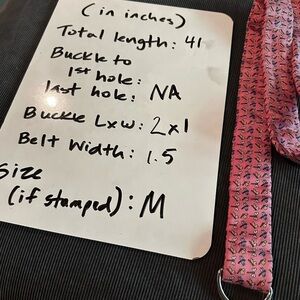 (in inches)
Total length: 41
Buckle to
1st hole:
last hole: NA
Buckle LxW: 2x1
Belt Width: 1.5
Size
(if stamped): M